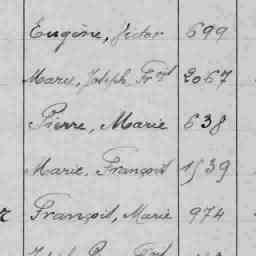 Eugène, Fédor 699
Marie, Joseph, Frçois 2067
Pierre, Marie 638
Marie, François 1539
François, Marie 974